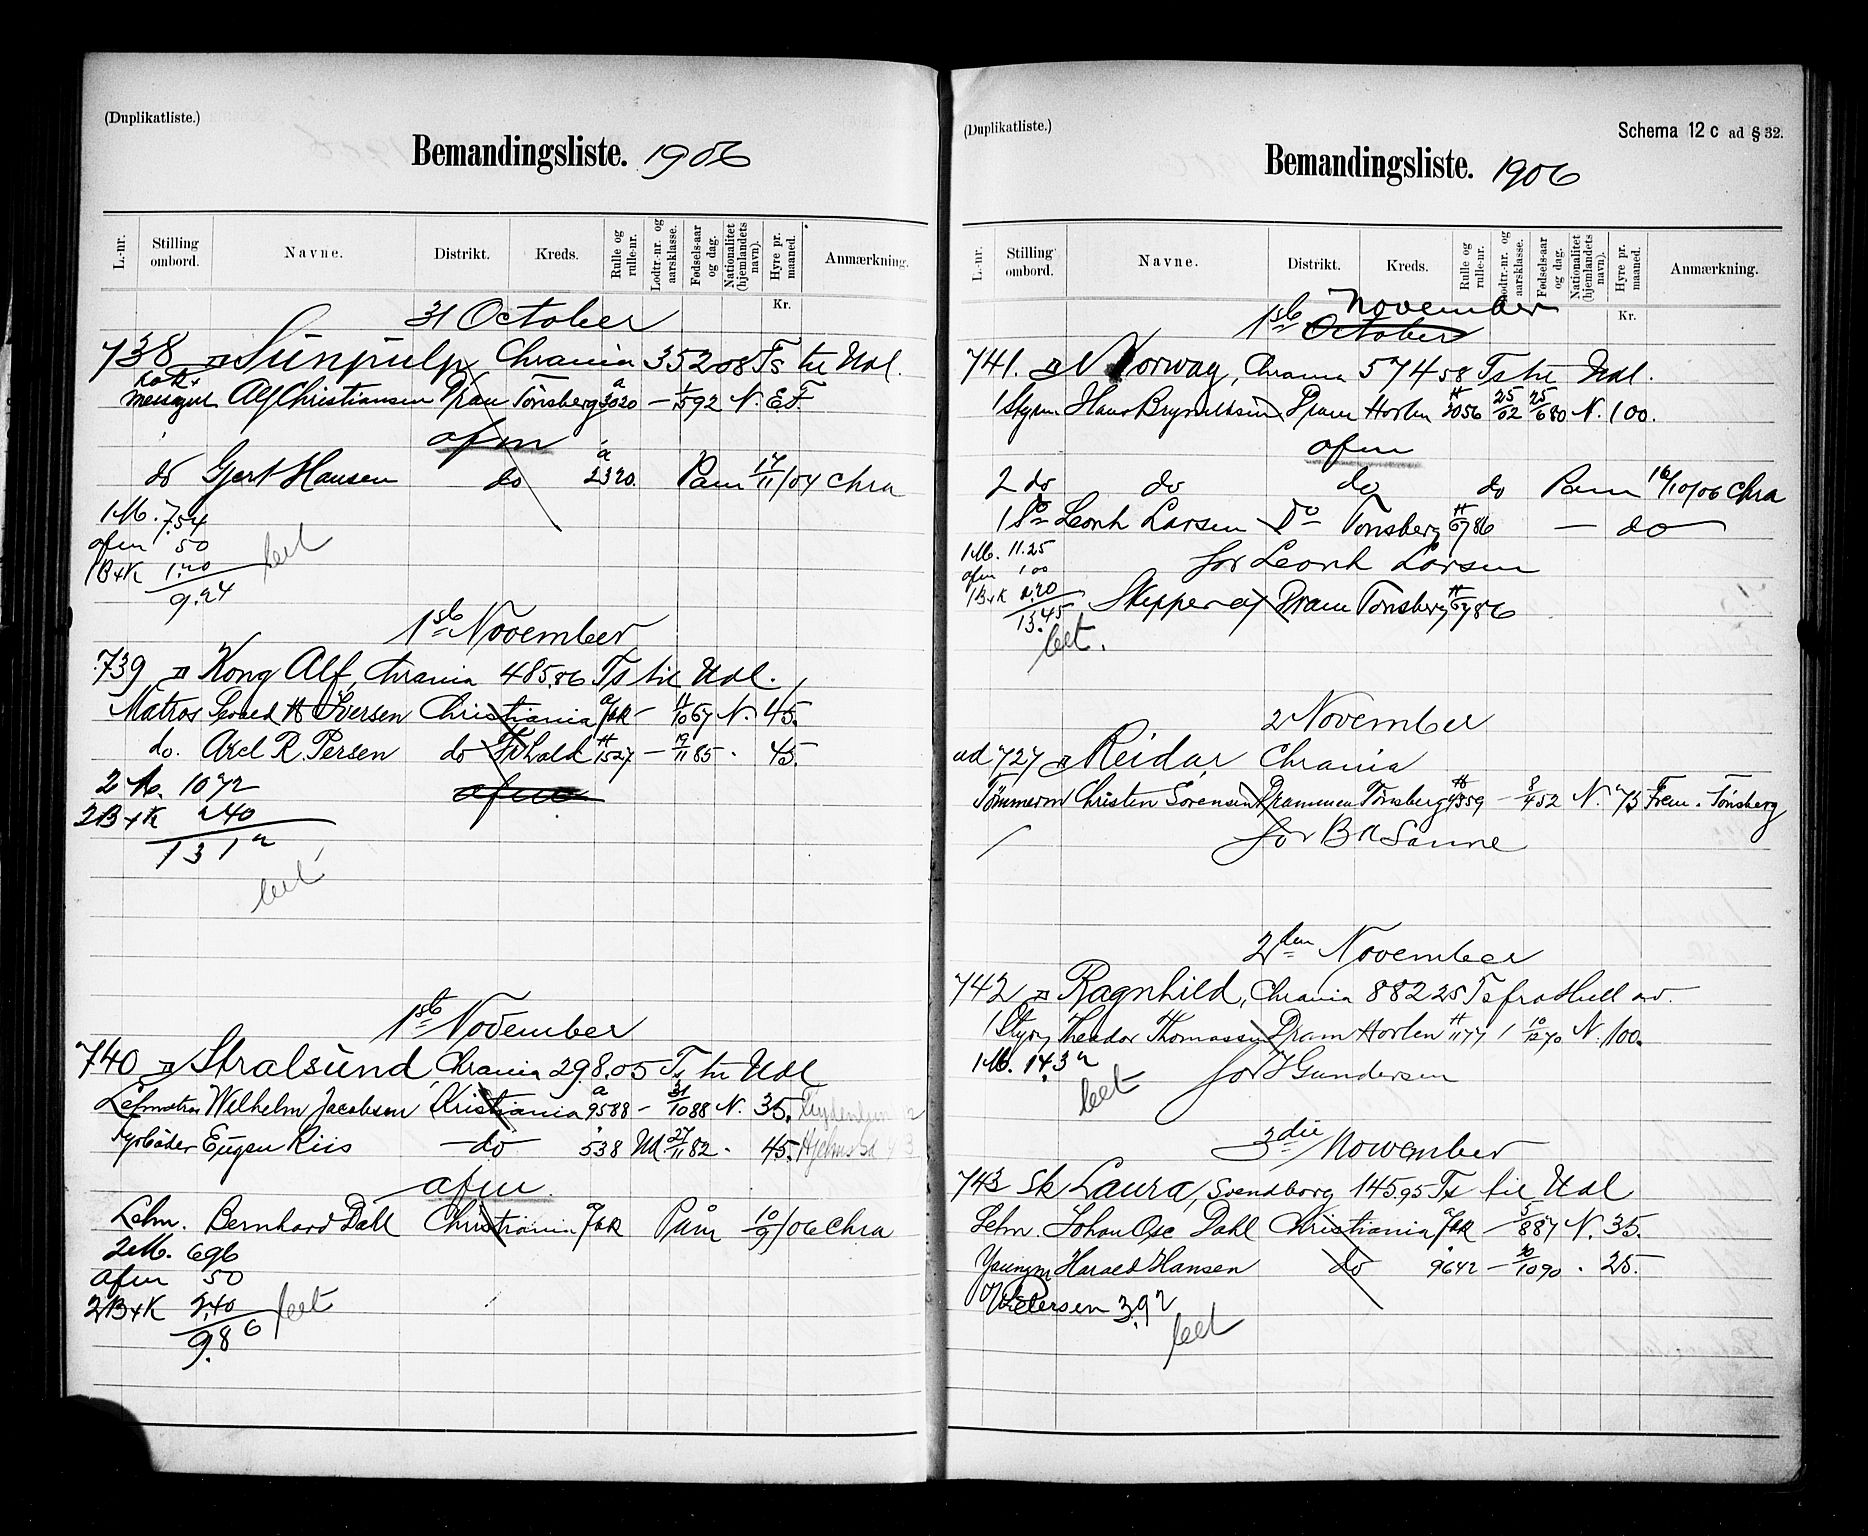 (Duplikatliste.)
Bemandingsliste. 1906
L.-nr.
Stilling ombord.
Navne.
Distrikt.
Kreds.
Rulle og rulle-nr.
Lodtr.-nr. og aarsklasse.
Fødsels-aar og dag.
Nationalitet (hjemlandets navn).
Hyre pr. maaned.
Anmærkning.
Kr.
31 October
738 Sünpulp, Chrania 352 08 Ts til Udl.
kok+
messegut Alf Christiansen Dram Tönsberg a 3020 — 92 N. E.F.
afm
do Gjert Hansen do a 2320. Paam 17/11/04 Chra
1 M. 7.54
afm 50
1 B+K 1.20
9.24
leet
1ste November
739 Kong Alf, Chrania 485.86 Ts til Udl.
Matros H Iversen Christiania a — 11/10 67 N. 45.
do. Axel R. Persen do Frhald H 1527 — 19/11 85 . 45.
2 M. 1072
afm
2 B+K 240
1312
leet
1ste November
740 Stralsünd, Chrania 298.05 Ts til Udl
Letmatros Wilhelm Jacobsen Kristiania a 9588 — 31/10 88 N. 35.
Fyrböder Eügen Riis — do 538 Ud 27/11 82 . 45.
afm
Letm. Bernhard Dahl Christiania Paam 10/9/06 Chra
2 M. 696
afm 50
2 B+K 2.40
9.86
leet
(Duplikatliste.)
Schema 12 c ad § 32.
Bemandingsliste. 1906
L.-nr.
Stilling ombord.
Navne.
Distrikt.
Kreds.
Rulle og rulle-nr.
Lodtr.-nr. og aarsklasse.
Fødsels-aar og dag.
Nationalitet (hjemlandets navn).
Hyre pr. maaned.
Anmærkning.
Kr.
November
1ste October
741. Norway, Chrania 574 58 Ts til Udl.
1 Styrm Hans Brynildsen Dram Horten H 2056 25/02 25/6 80 N. 100.
afm
2 do do do do Paam 16/10/06 Chra
1 Do Leonh Larsen Do Tönsberg H 6786 — do
1 M. 11.25
for Leonh Larsen
afm 1 00
1 B+K 1.20
Skipper af Dram Tönsberg H 6786
13.45
leet.
2 November
ad 727 Reidar Chrania
Tömmerm Christen Sörensen Drammen Tönsberg H 4359 — 8/4 52 N. 75 Frem. Tönsberg
for B A Sanne
2den November
742 Ragnhild, Chrania 882 25 Ts fra Hull
1 Styrm Theodor Thomassen Dram Horten H 1177 10/12 70 N. 100.
1 M. 14.32
for J Gundersen
leet
3die Nowember
743 Sk Laura, Svendborg 145,95 Ts til Udl
Letm. Johan Osc Dahl Christiania — 5/8 87 N. 35.
Youngm Harald Hansen do 9642 — 30/10 90 . 25.
Petersen 3.92
leet